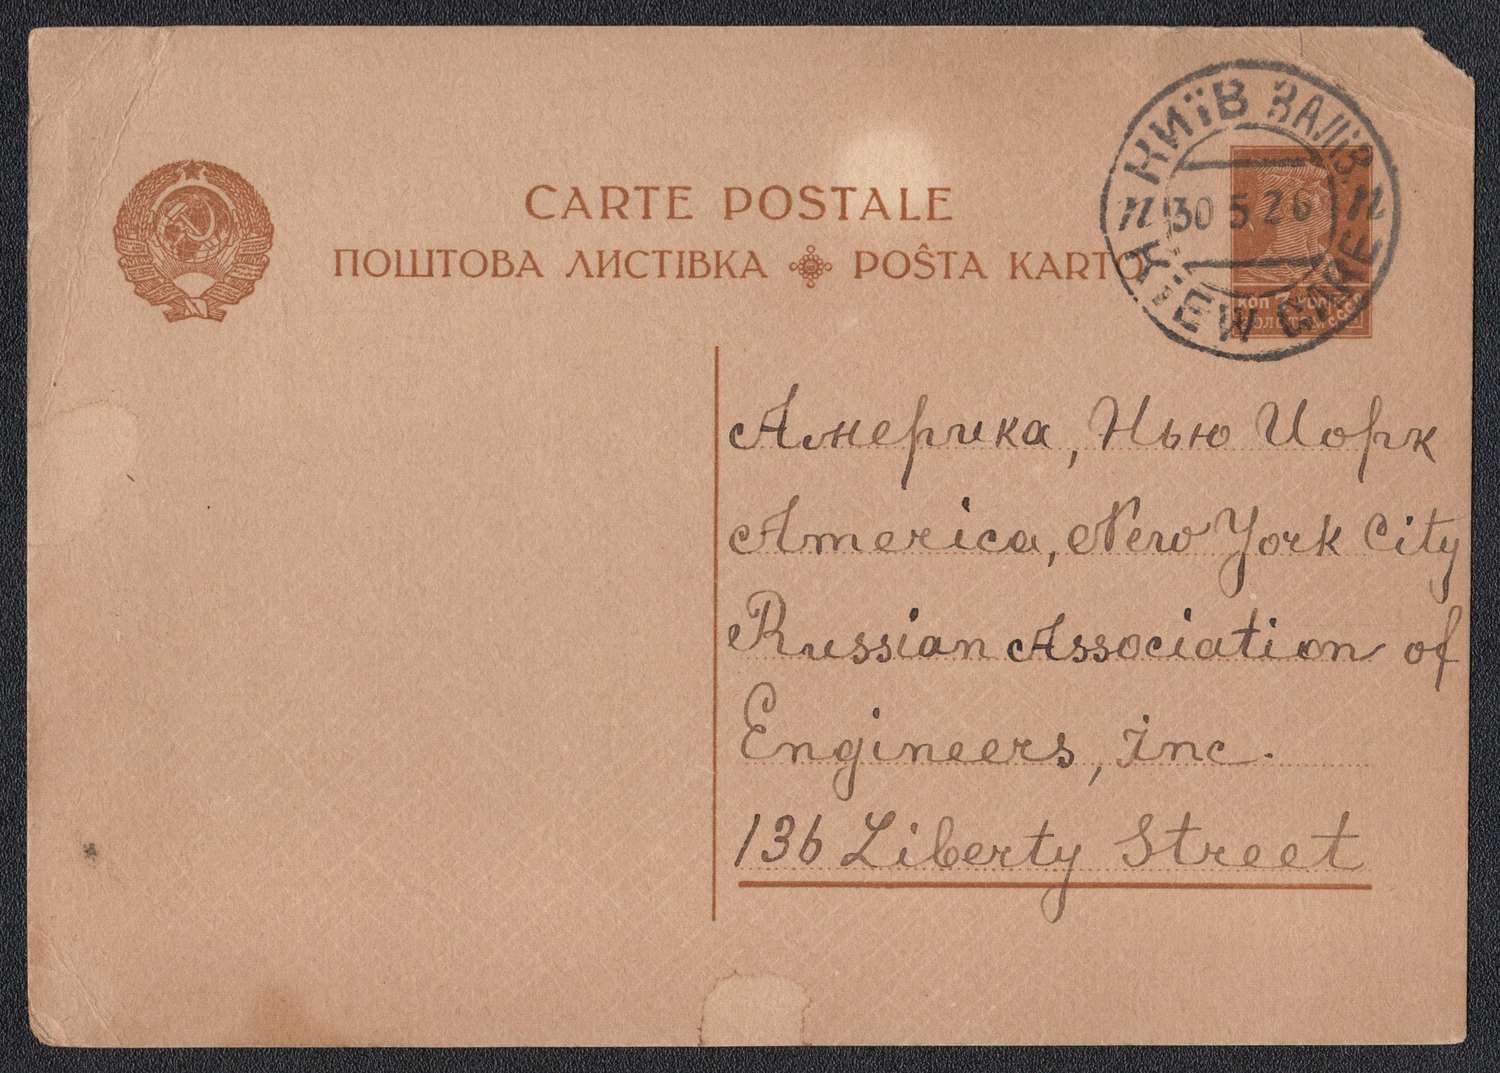 CARTE POSTALE
ПОШТОВА ЛИСТІВКА POŜTA KARTO
КИЇВ ЗАЛІЗ
п 30 5 26 п
KIEW GARE
Америка, Нью Иорк
America, New York City
Russian Association of
Engineers, Inc.
136 Liberty Street